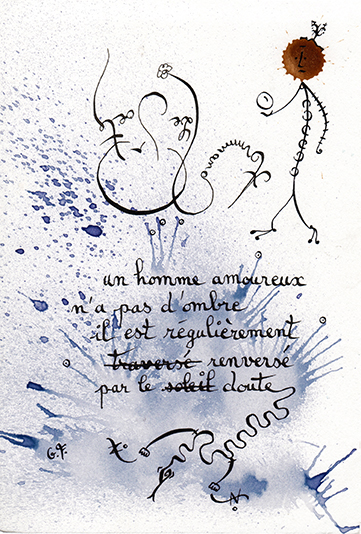 un homme amoureux
n'a pas d'ombre
il est regulièrement
traversé renversé
par le soleil doute
G.F.